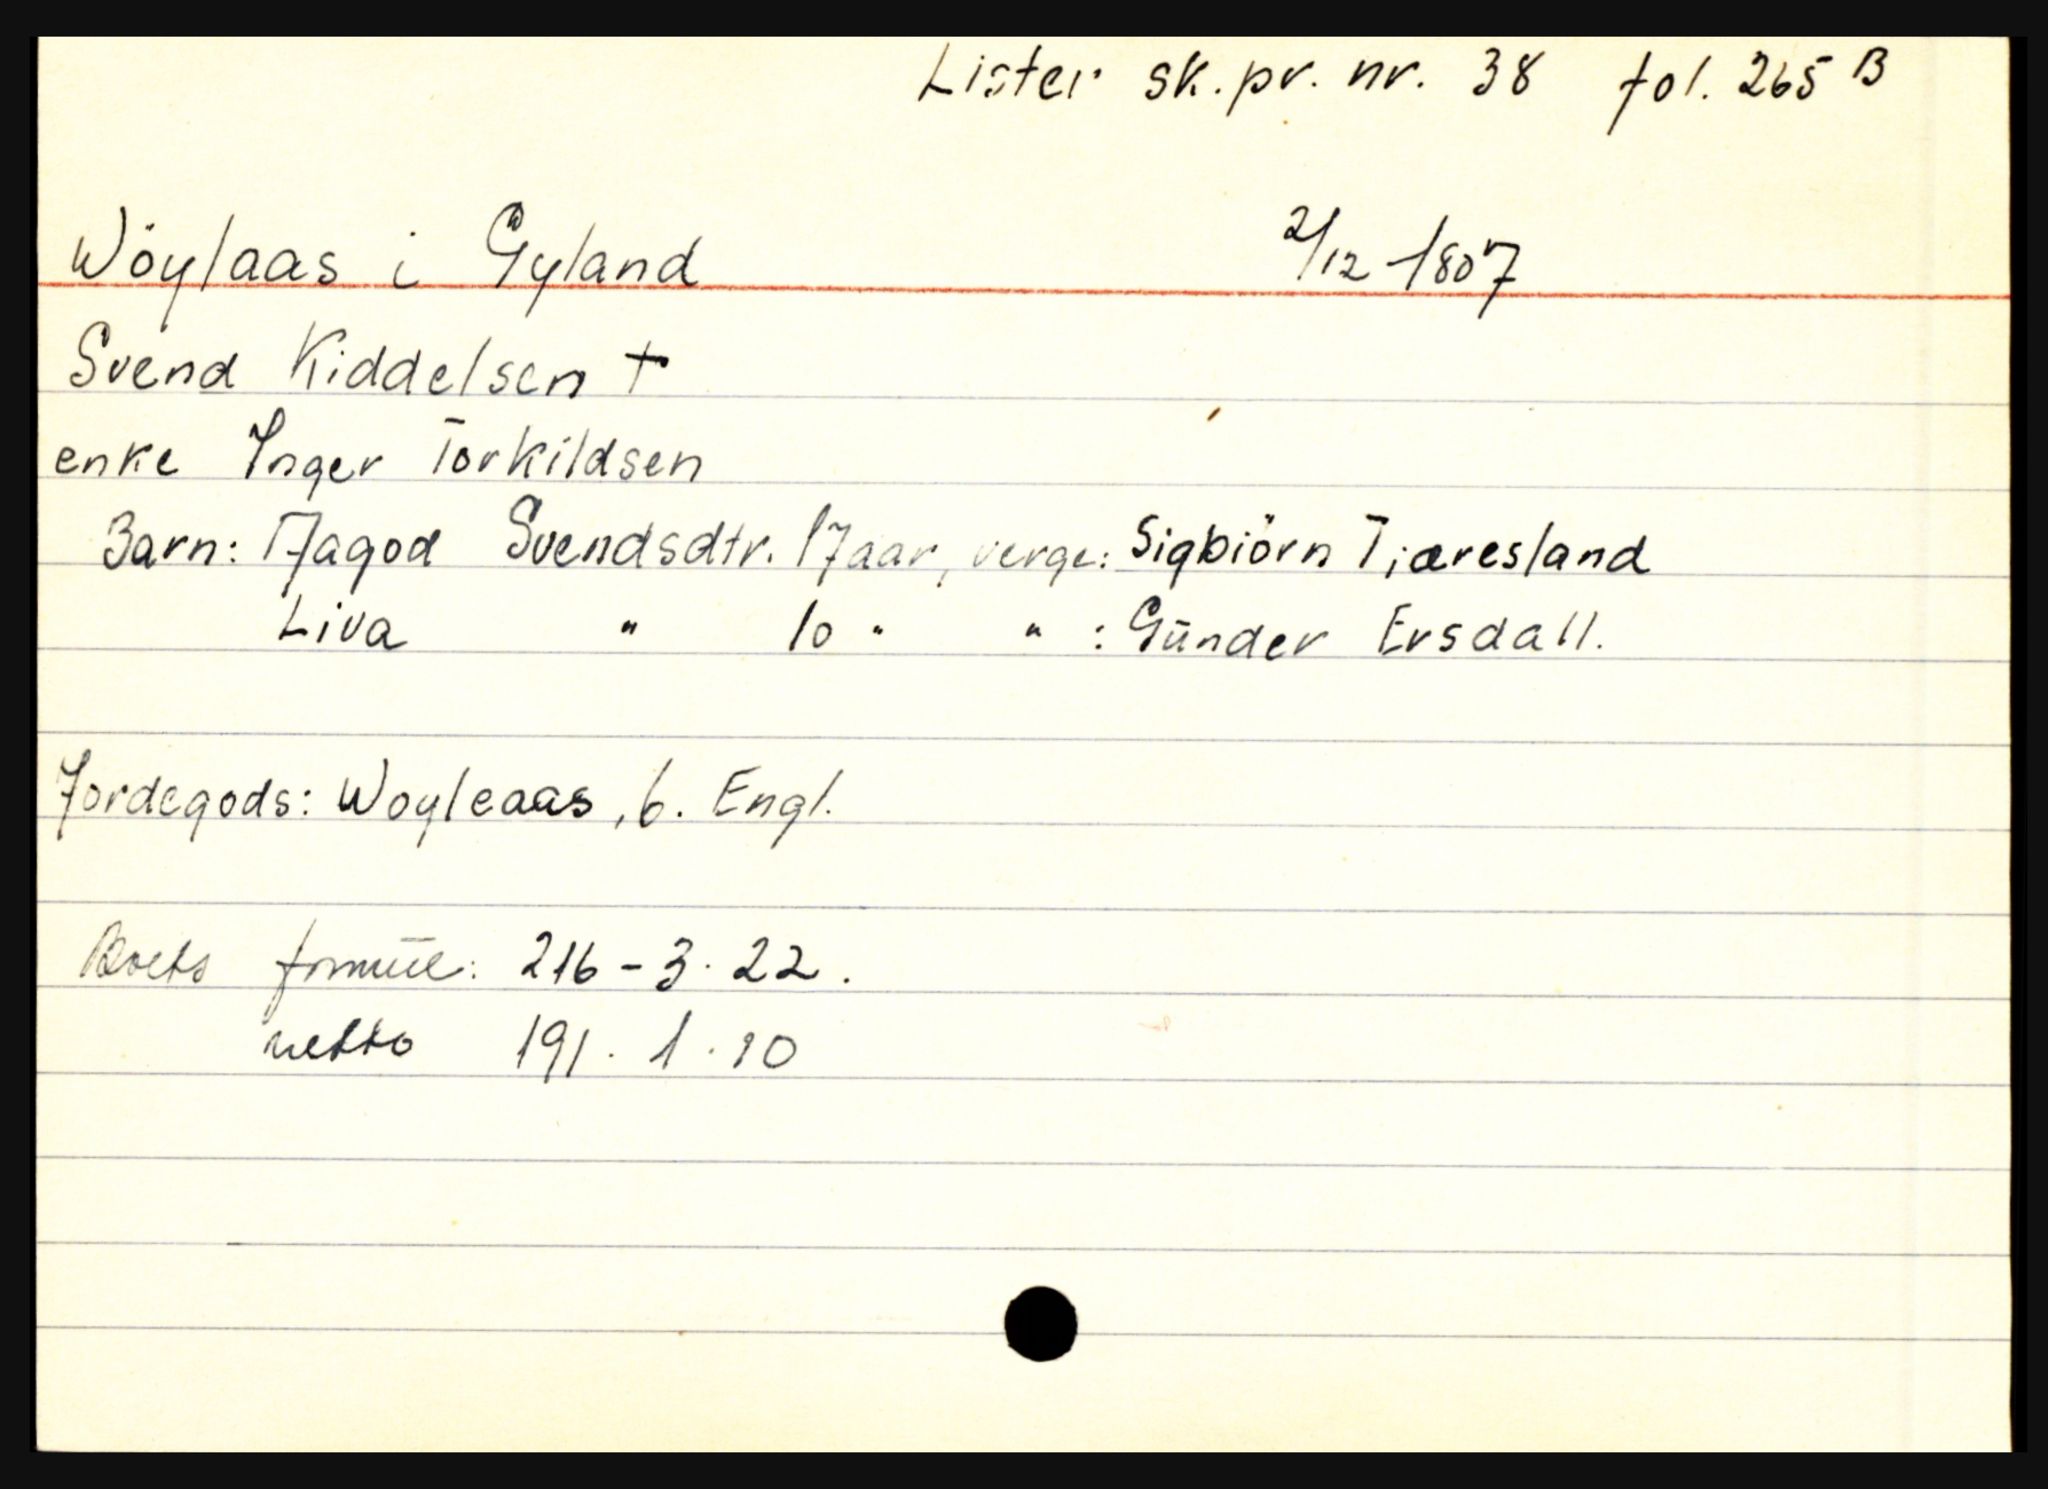 Lister sk.pr. nr. 38 fol. 265 B
Wöylaas i Gyland 2/12-1807
Svend Kiddelsen †
enke Inger Torkildsen
Barn: Aagod Svendsdtr. 17aar, verge: Sigbiörn Tiæresland
Liva " 10 " " : Günder Ersdall.
Jordegods: Woyleaas, 6. Engl.
Boets formue: 216 - 3. 22.
netto 191. 1. 10